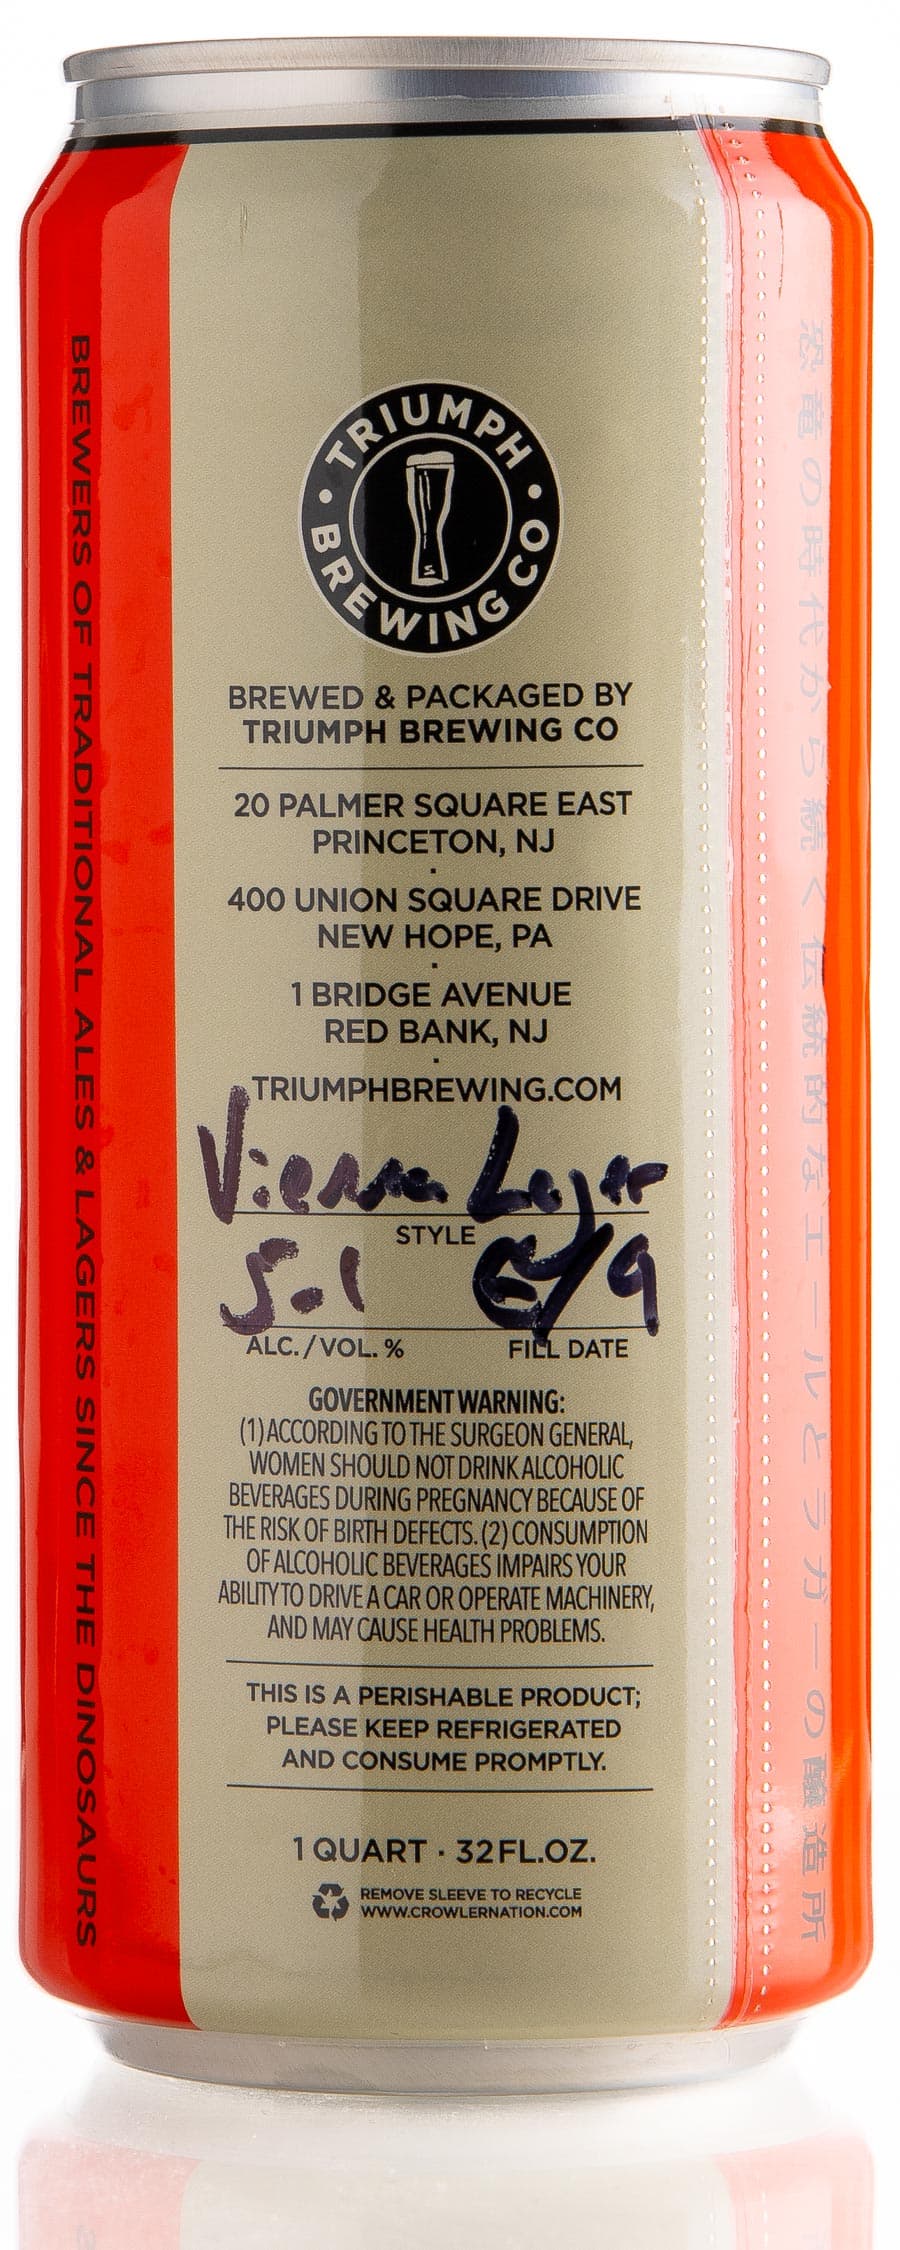 TRIUMPH
BREWING CO
BREWED & PACKAGED BY
TRIUMPH BREWING CO
20 PALMER SQUARE EAST
PRINCETON, NJ
400 UNION SQUARE DRIVE
NEW HOPE, PA
1 BRIDGE AVENUE
RED BANK, NJ
TRIUMPHBREWING.COM
Vienna Lager
STYLE
5.1 6/9
ALC./VOL. % FILL DATE
GOVERNMENT WARNING:
(1) ACCORDING TO THE SURGEON GENERAL,
WOMEN SHOULD NOT DRINK ALCOHOLIC
BEVERAGES DURING PREGNANCY BECAUSE OF
THE RISK OF BIRTH DEFECTS. (2) CONSUMPTION
OF ALCOHOLIC BEVERAGES IMPAIRS YOUR
ABILITY TO DRIVE A CAR OR OPERATE MACHINERY,
AND MAY CAUSE HEALTH PROBLEMS.
THIS IS A PERISHABLE PRODUCT;
PLEASE KEEP REFRIGERATED
AND CONSUME PROMPTLY.
1 QUART · 32 FL.OZ.
REMOVE SLEEVE TO RECYCLE
WWW.CROWLERNATION.COM
BREWERS OF TRADITIONAL ALES & LAGERS SINCE THE DINOSAURS
恐竜の時代から続く伝統的なエールとラガーの醸造所